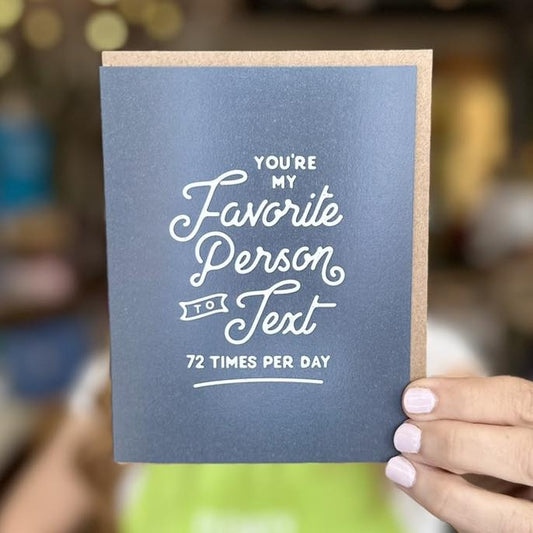 YOU'RE
MY
Favorite
Person
TO Text
72 TIMES PER DAY